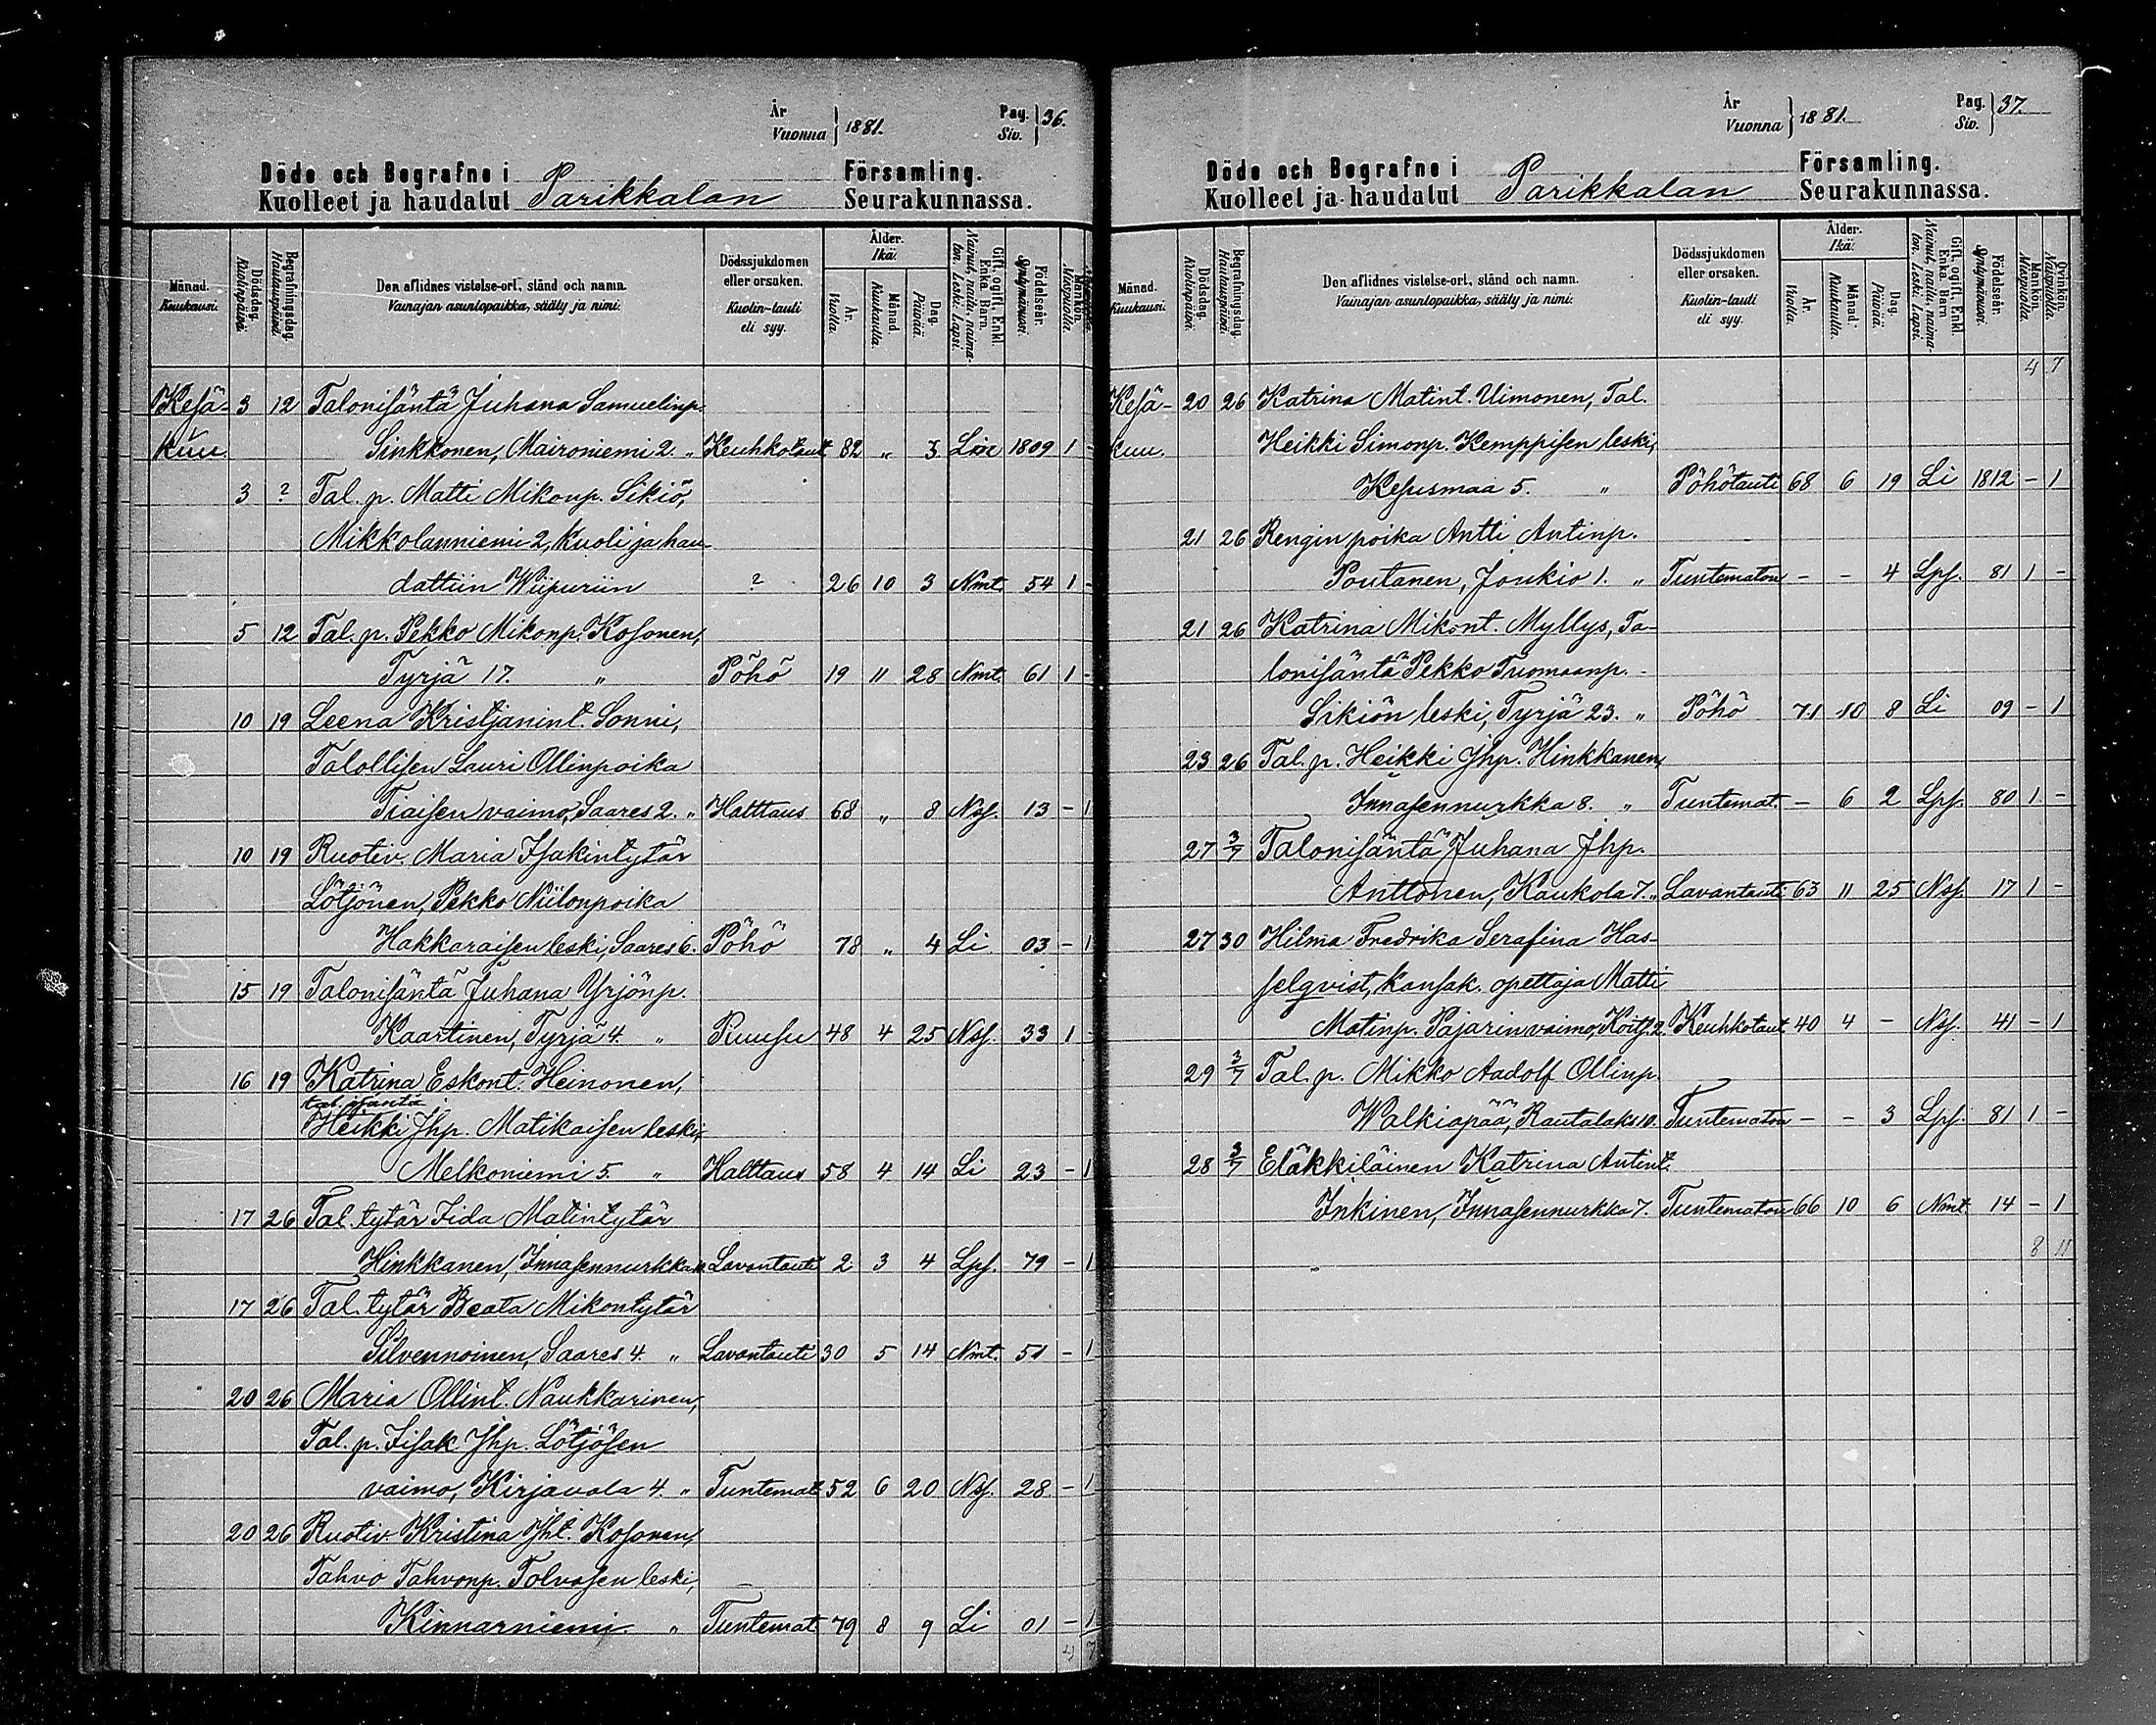 År
Vuonna } 1881. Pag. Siv. } 36.
Döde och Begrafne i Församling.
Kuolleet ja haudatut Parikkalan Seurakunnassa.
Månad. Kuukausi. Dödsdag. Kuolinpäivä. Begrafningsdag. Hautauspäivä. Den aflidnes vistelse-ort, stånd och namn. Vainajan asuntopaikka, sääty ja nimi. Dödssjukdomen eller orsaken. Kuolin-tauti eli syy. Ålder. Ikä. År. Vuotta. Månad. Kuukautta. Dag. Päivää. Gift, ogift, Enkl. Enka. Barn. Nainut, naitu, naimaton. Leski. Lapsi. Födelseår. Syntymävuosi. Mankön. Miespuolia.
Kesä- 3 12 Talonisäntä Juhana Samuelinp.
kuu. Sinkkonen, Maironiemi 2. " Keuhkotaut 82 " 3 1809 1 -
3 ? Tal. p. Matti Mikonp. Sikiö,
Mikkolanniemi 2, kuoli ja hau-
dattiin Wiipuriin ? 26 10 3 Nmt. 54 1 -
5 12 Tal. p. Pekko Mikonp. Kosonen,
Tyrjä 17. " Pöhö 19 11 28 Nmt. 61 1 -
10 19 Leena Kristjanint. Sonni,
Talollisen Lauri Ollinpoika
Tiaisen vaimo, Saares 2. " Halttaus 68 " 8 Nsf. 13 - 1
10 19 Ruotiv. Maria Isakintytär
Lötjönen, Pekko Niilonpoika
Hakkaraisen leski, Saares 6. Pöhö 78 " 4 Li 03 - 1
15 19 Talonisäntä Juhana Yrjönp.
Kaartinen, Tyrjä 4. " Ruusu 48 4 25 Nsf. 33 1 -
16 19 Katrina Eskont. Heinonen,
tal. isäntä
Heikki Jhp. Matikaisen leski,
Melkoniemi 5. " Halttaus 58 4 14 Li 23 - 1
17 26 Tal. tytär Iida Matintytär
Hinkkanen, Innasennurkka Lavantauti 2 3 4 Lps. 79 - 1
17 26 Tal. tytär Beata Mikontytär
Silvennoinen, Saares 4. " Lavantauti 30 5 14 Nmt. 51 - 1
20 26 Maria Ollint. Naukkarinen,
Tal. p. Iisak Jhp. Lötjösen
vaimo, Kirjavala 4. " Tuntemat 52 6 20 Nsf. 28 - 1
20 26 Ruotiv. Kristina Jht. Kosonen,
Tahvo Tahvonp. Tolvasen leski,
Kinnarniemi. " Tuntemat 79 8 9 Li 01 - 1
4 7
År
Vuonna } 1881. Pag. Siv. } 37.
Döde och Begrafne i Församling.
Kuolleet ja haudatut Parikkalan Seurakunnassa.
Månad. Kuukausi. Dödsdag. Kuolinpäivä. Begrafningsdag. Hautauspäivä. Den aflidnes vistelse-ort, stånd och namn. Vainajan asuntopaikka, sääty ja nimi. Dödssjukdomen eller orsaken. Kuolin-tauti eli syy. Ålder. Ikä. År. Vuotta. Månad. Kuukautta. Dag. Päivää. Gift, ogift, Enkl. Enka. Barn. Nainut, naitu, naimaton. Leski. Lapsi. Födelseår. Syntymävuosi. Mankön. Miespuolia. Qvinkön. Naispuolia.
4 7
Kesä- 20 26 Katrina Matint. Uimonen, Tal.
kuu. Heikki Simonp. Kemppisen leski,
Kesusmaa 5. " Pöhötauti 68 6 19 Li 1812 - 1
21 26 Rengin poika Antti Antinp.
Poutanen, Joukio 1. " Tuntematon - - 4 Lps. 81 1 -
21 26 Katrina Mikont. Myllys, Ta-
lonisäntä Pekko Tuomaanp.
Sikiön leski, Tyrjä 23. " Pöhö 71 10 8 Li 09 - 1
23 26 Tal. p. Heikki Jhp. Hinkkanen,
Innasennurkka 8. " Tuntemat. - 6 2 Lps. 80 1 -
27 3/7 Talonisäntä Juhana Jhp.
Anttonen, Kaukola 7. " Lavantauti 63 11 25 Nsf. 17 1 -
27 30 Hilma Fredrika Serafina Has-
selqvist, kansak. opettaja Matti
Matinp. Pajarin vaimo, Koits. 2. Keuhkotaut 40 4 - Nsf. 41 - 1
29 3/7 Tal. p. Mikko Aadolf Ollinp.
Walkiapää, Rautalaks 10. Tuntematon - - 3 Lps. 81 1 -
28 3/7 Eläkkiläinen Katrina Antint.
Inkinen, Innasennurkka 7. Tuntematon 66 10 6 Nmt 14 - 1
8 11